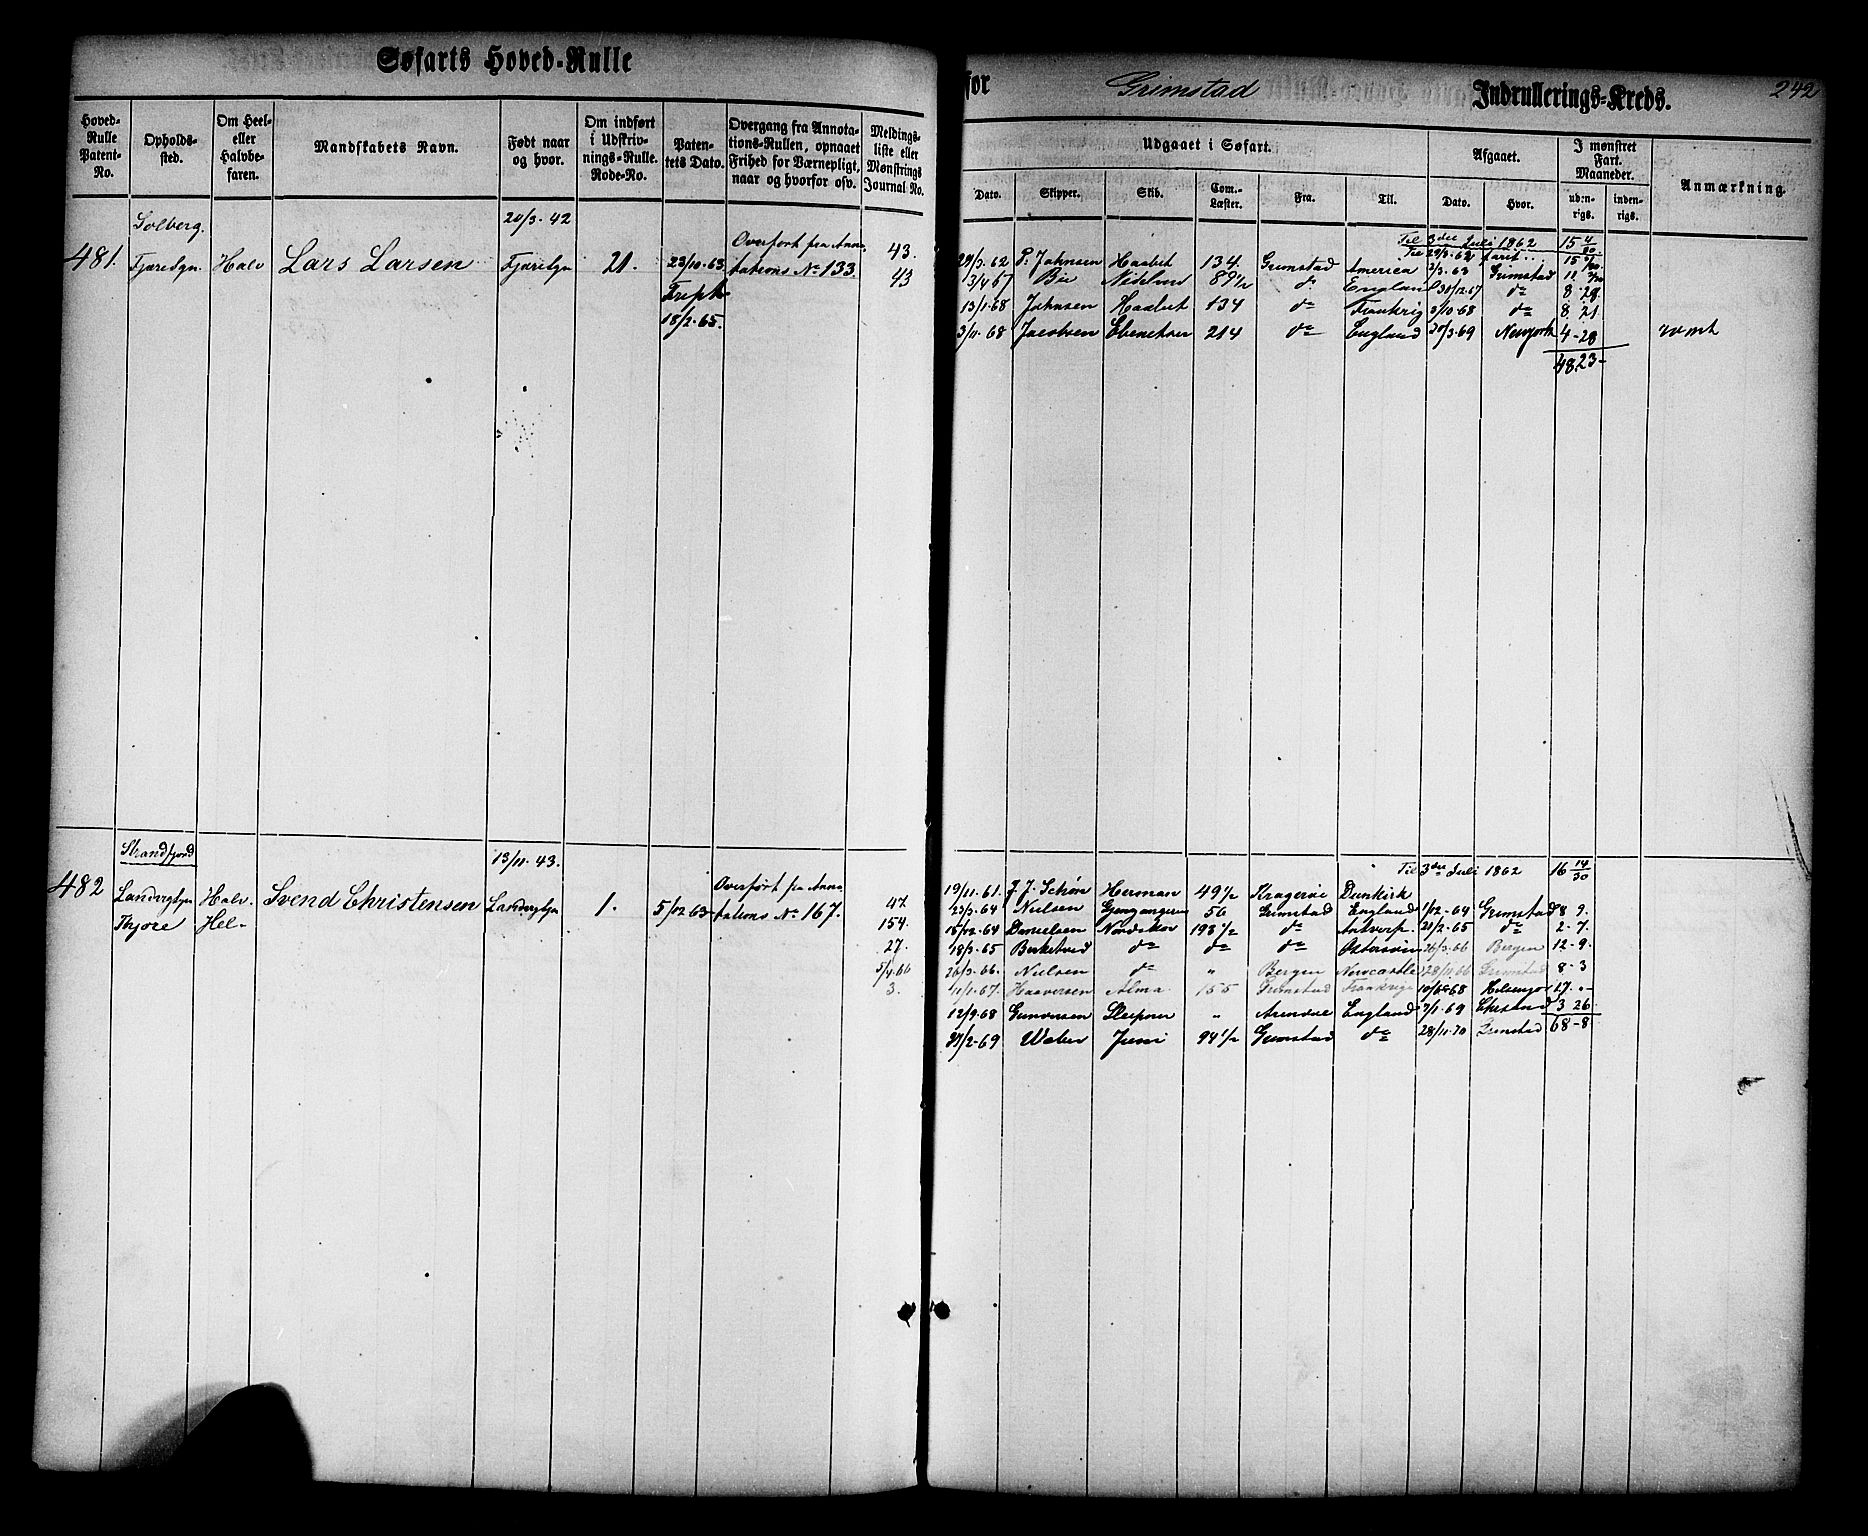 Søfarts Hoved-Rulle
for Grimstad Indrullerings-Kreds. 242
Hoved-Rulle Patent-No.
Opholds-sted.
Om Heel- eller Halvbe-faren.
Mandskabets Navn.
Født naar og hvor.
Om indført i Udskriv-nings-Rulle. Rode-No.
Paten-tets Dato.
Overgang fra Annota-tions-Rullen, opnaaet Frihed for Værnepligt, naar og hvorfor osv.
Meldings-liste eller Mønstrings Journal No.
Udgaaet i Søfart.
Afgaaet.
I mønstret Fart. Maaneder.
Anmærkning.
Dato. Skipper. Skib. Com.-Læster. Fra. Til. Dato. Hvor. uden-rigs. inden-rigs.
Solberg. 20/3. 42
481. Fjæreleg. Halv Lars Larsen 21. 23/10.63 Overført fra Anno-tations No 133 43.
43
18/2.65.
Til 3die Juli 1862 15 4/30
29/3.62 P. Johnsen Haabet 134. Grimstad America 2/3.63 Grimstad
13/4 67 Bie 89 1/2 do England 30/12.67 do 8 28
13/1.68 Johnsen Haabet 134 do Frankrig 3/10.68 do 8 21
3/11.68 Jacobsen Ebenetser 214 do England 30/3.69 Newyork 4-28
48.23-
Strandfjord 13/11.43.
482 Halv. Svend Christensen 1. 5/12 63 Overført fra Anno-tations No 167. 47
Hel- 154.
27.
5/4.66
3.
Til 3die Juli 1862 16 14/30
19/11.61. J. J. Schøn Herman 49 1/2 Kragerøe Dunkirk
23/3.64 Nielsen Gjengangeren 56 Grimstad England 1/12.64 Grimstad 8 9.
15/12.64 Danielsen Nordskov 198 1/2 do Antverp. 21/2.65 do 2-7.
18/3.65 Birketved do do do Østersøen 26/3.66 Bergen 12-9.
26/3.66. Nielsen do " Bergen Newcastle 28/11.66 Grimstad 8-3
11/1.67. Haaversen Alma 155 Grimstad Frankrige 68 Helsingør 17.
12/9.68 Gunvorsen Sleipner " Arendal England 7/1.69 Chrsand 3 26
27/2-69 Weber Juni 94 1/2 Grimstad do 28/11.70 Grimstad 68-8